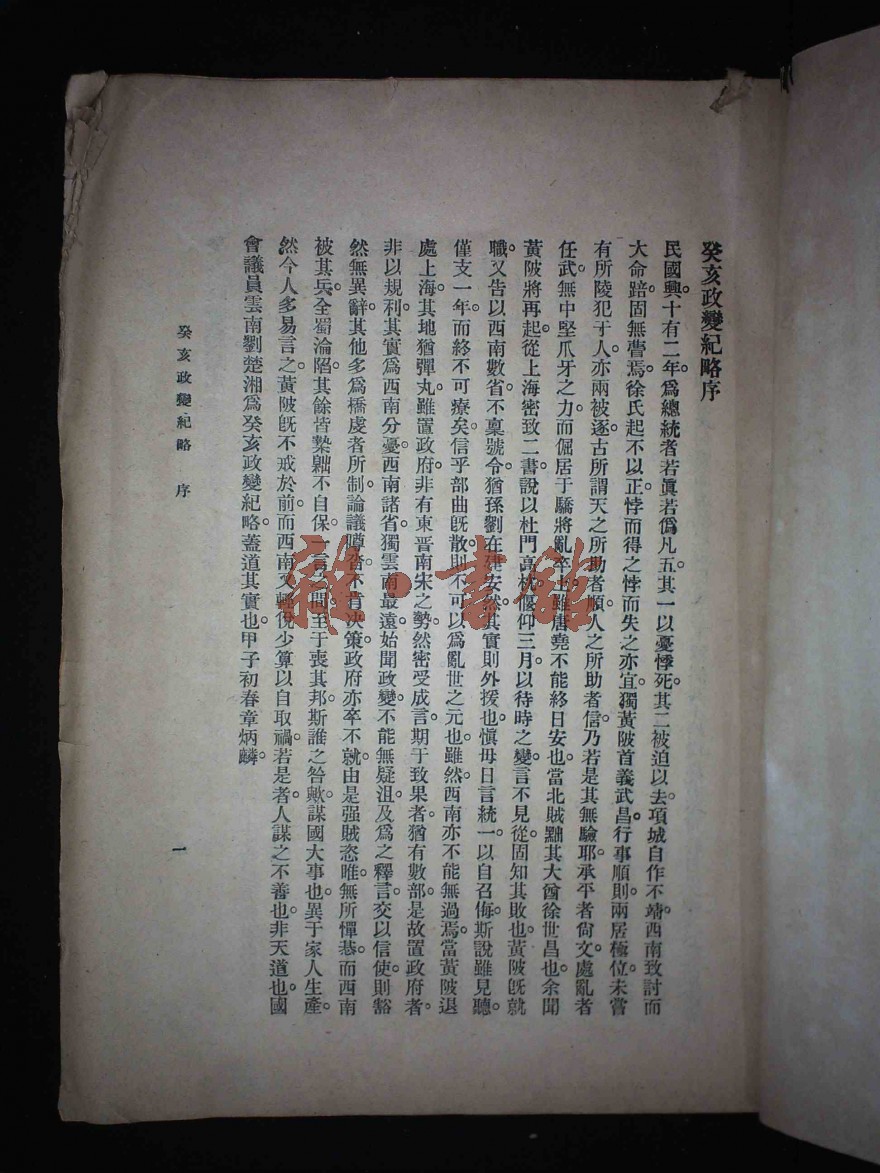 癸亥政變紀略序
民國興十有二年。爲總統者若眞若僞凡五。其一以憂悸死。其二被迫以去。項城自作不靖。西南致討而
大命踣。固無瞢焉。徐氏起不以正。悖而得之。悖而失之。亦宜。獨黃陂首義武昌。行事順則。兩居極位。未嘗
有所陵犯于人。亦兩被逐。古所謂天之所助者順。人之所助者信。乃若是其無驗耶。承平者尙文。處亂者
任武。無中堅爪牙之力。而倔居于驕將亂卒上。雖唐堯不能終日安也。當北賊黜其大酋徐世昌也。余聞
黃陂將再起。從上海密致二書。說以杜門高枕。偃仰三月。以待時之變。言不見從。固知其敗也。黃陂旣就
職。又告以西南數省。不稟號令。猶孫劉在建安。然其實則外援也。愼毋日言統一。以自召侮。斯說雖見聽。
僅支一年。而終不可療矣。信乎部曲旣散。則不可以爲亂世之元也。雖然。西南亦不能無過焉。當黃陂退
處上海。其地猶彈丸。雖置政府。非有東晋南宋之勢。然密受成言。期于致果者。猶有數部。是故置政府者。
非以規利。其實爲西南分憂。西南諸省。獨雲南最遠。始聞政變。不能無疑沮。及爲之釋言。交以信使。則豁
然無異辭。其他多爲橋虔者所制。論議噂沓。不肯决策。政府亦卒不就。由是强賊恣睢。無所憚惎。而西南
被其兵。全蜀淪陷。其餘皆槷𣎴不自保。一言之間。至于喪其邦。斯誰之咎歟。謀國大事也。異于家人生產。
然今人多易言之。黃陂旣不戒於前。而西南又輕侻少算以自取禍。若是者。人謀之不善也。非天道也。國
會議員雲南劉楚湘爲癸亥政變紀略。蓋道其實也。甲子初春章炳麟。
癸亥政變紀略 序
一
雜·書館